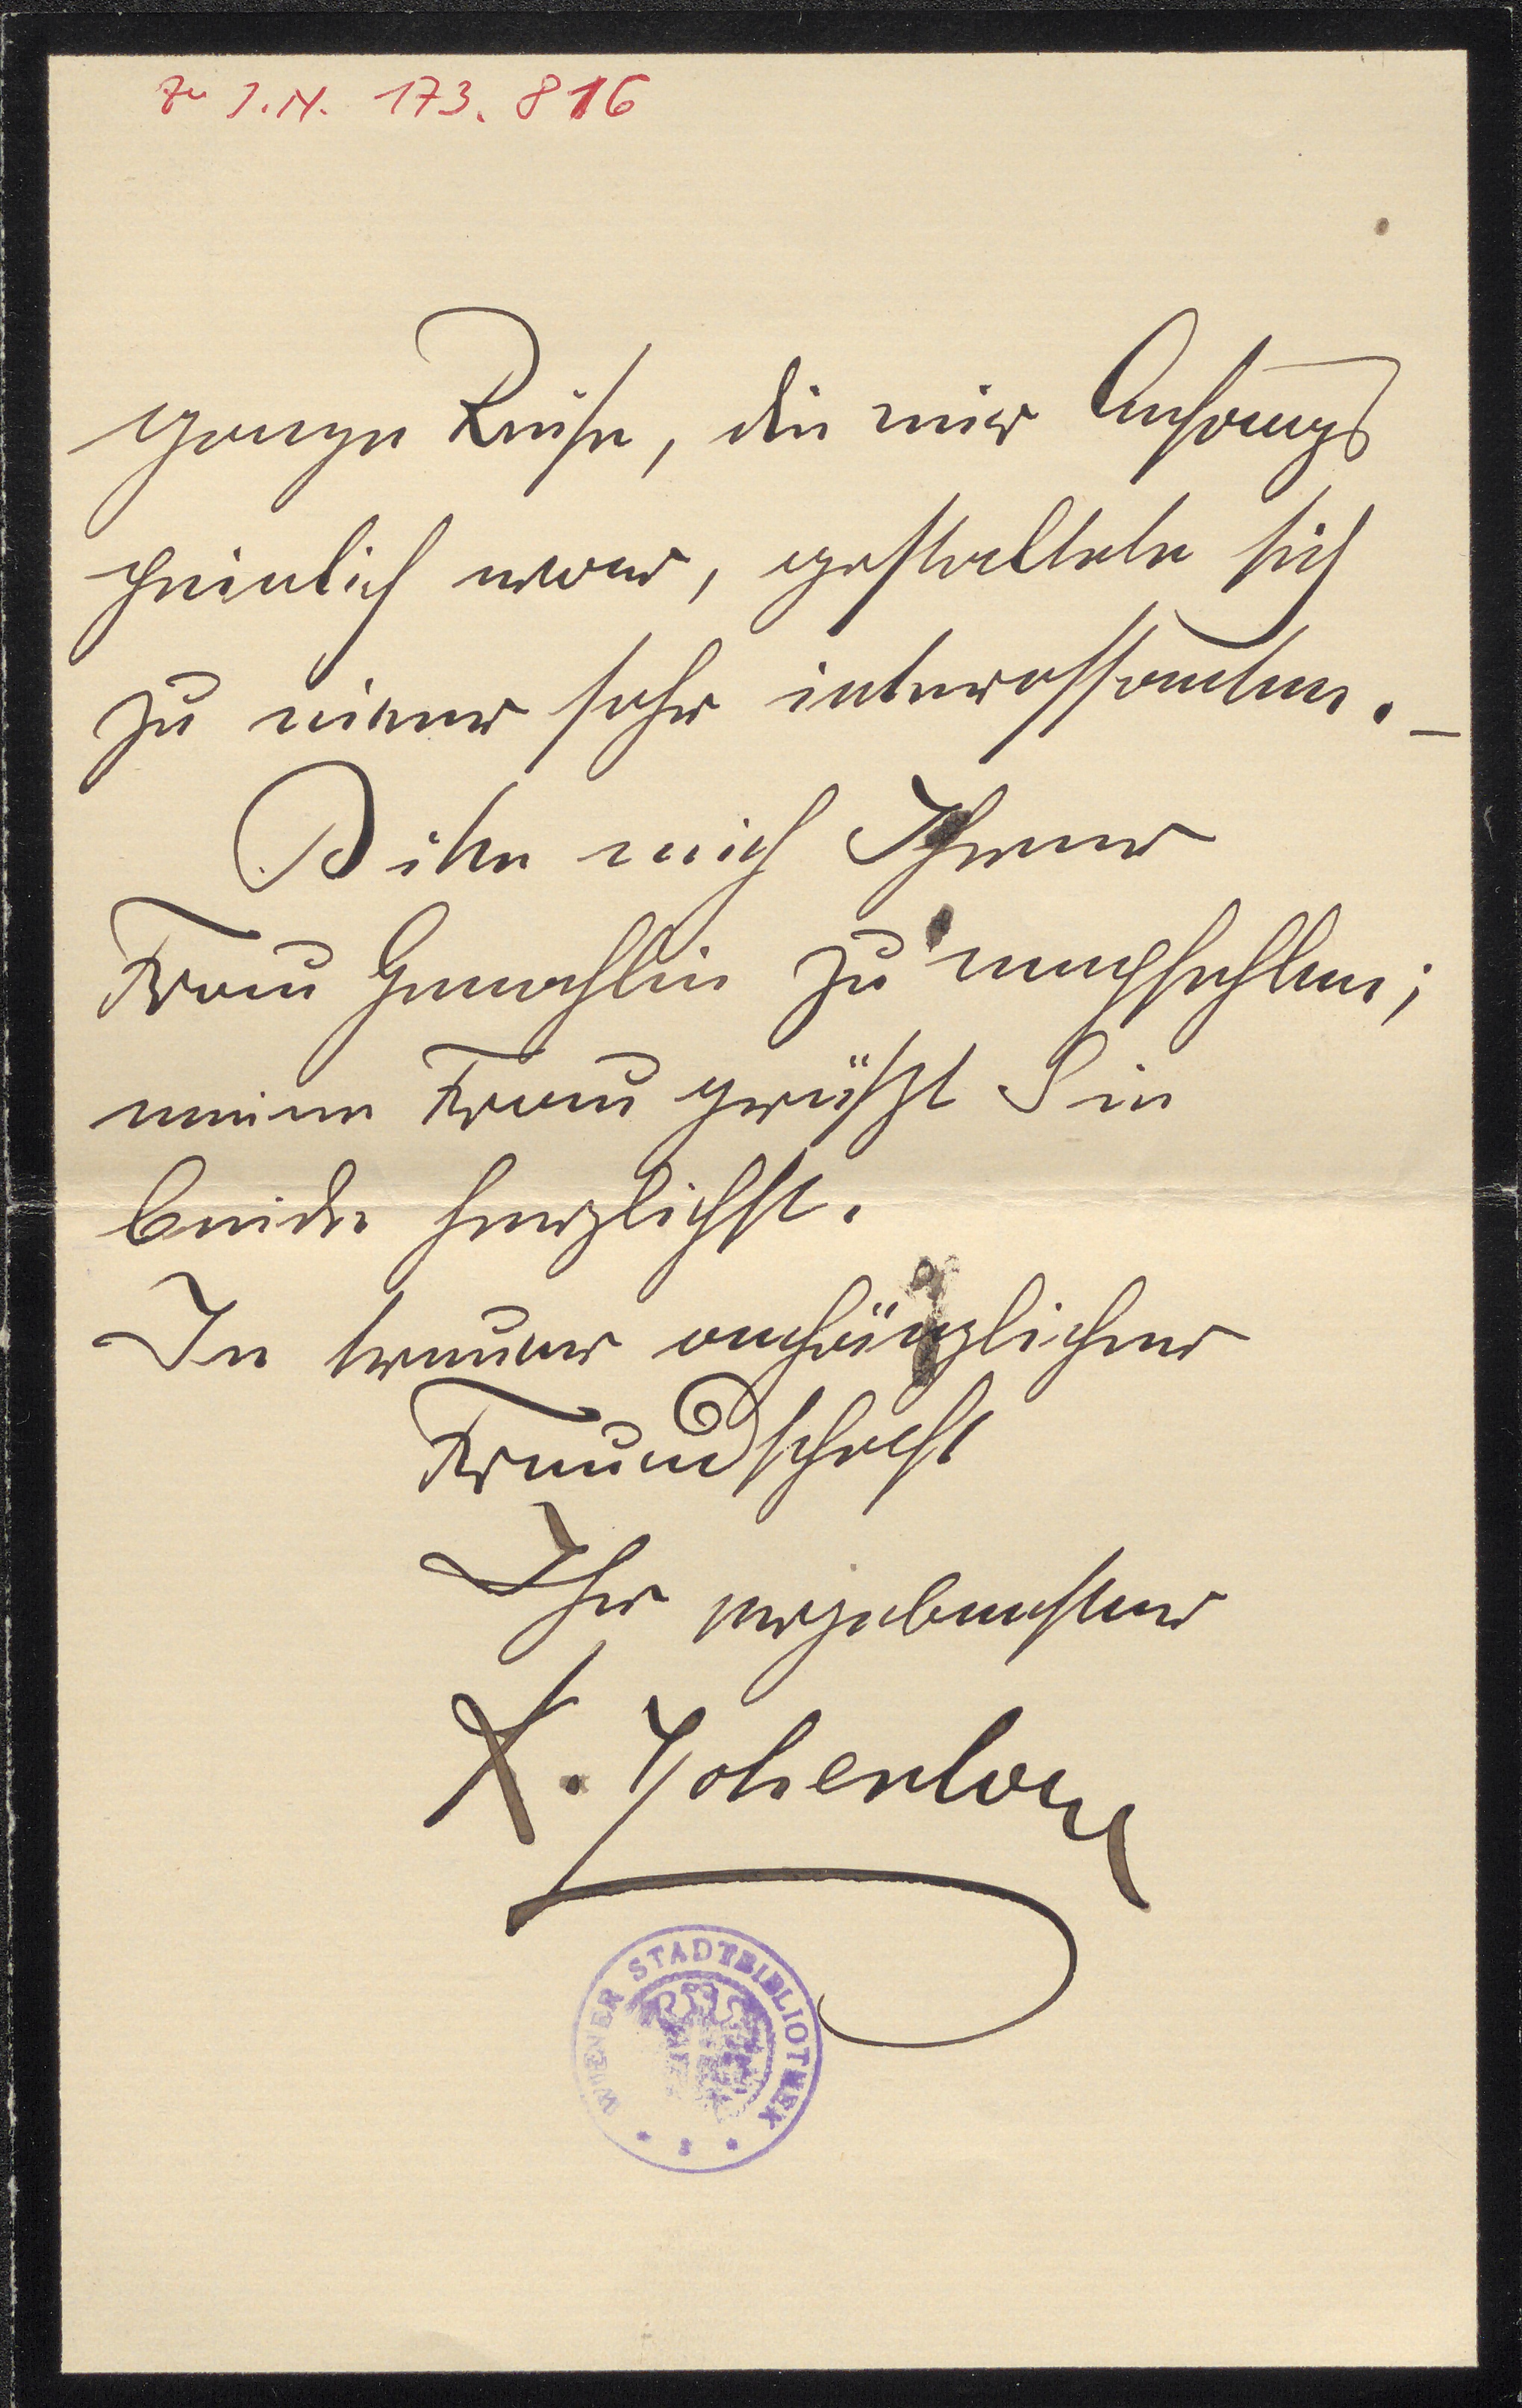 Zu I.N. 173.816
ganze Reise, die mir Anfangs
peinlich war, gestaltete sich
zu einer sehr interessanten. –
Bitte mich Ihrer
Frau Gemahlin zu empfehlen;
meine Frau grüßt Sie
beide herzlichst.
In treuer anhänglicher
Freundschaft
Ihr ergebenster
WIENER STADTBIBLIOTHEK